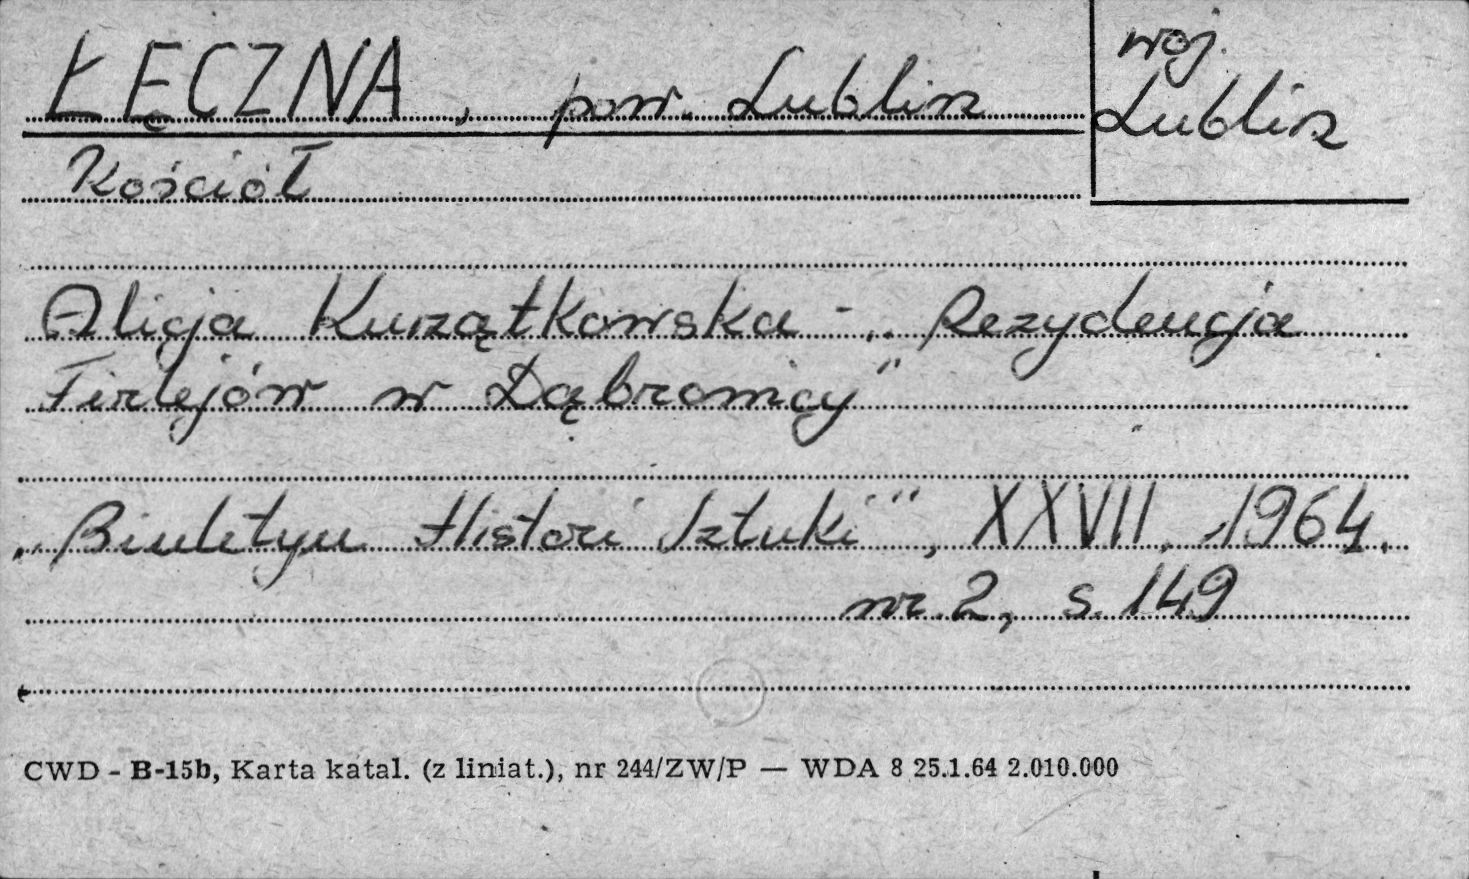 ŁĘCZNA, pow. Lublin
woj.
Lublin
Kościół
Alicja Kurzątkowska - „Rezydencja
Firlejów w Dąbrowicy”
„Biuletyn Histori Sztuki”, XXVII, 1964.
nr. 2, s. 149
CWD - B-15b, Karta katal. (z liniat.), nr 244/ZW/P — WDA 8 25.1.64 2.010.000